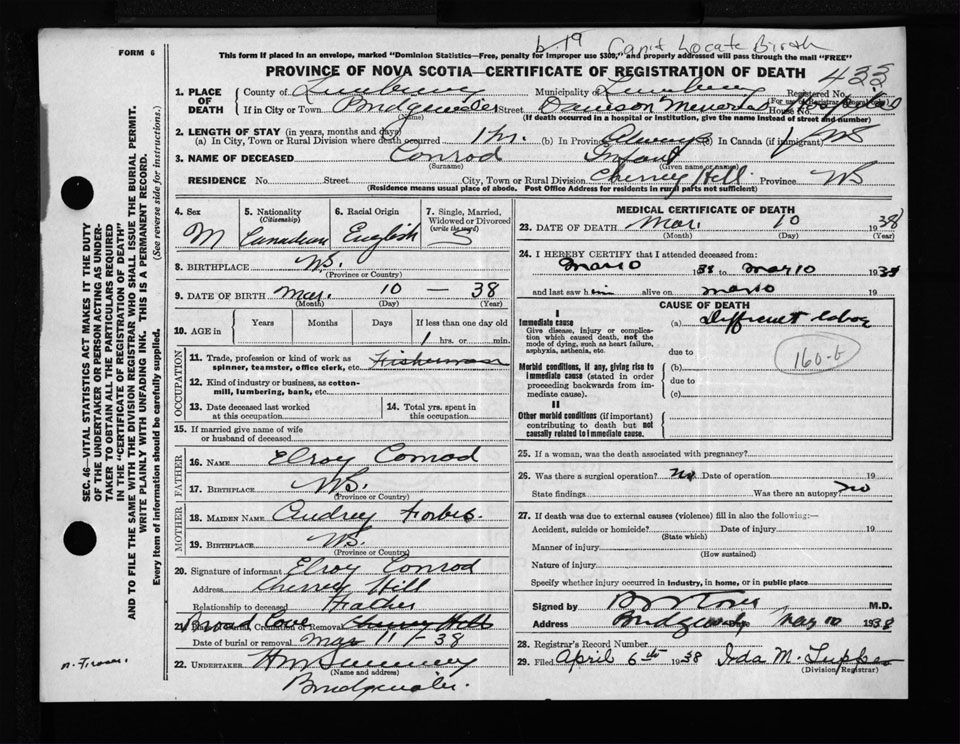 b. 19 Can't Locate Birth
FORM 6
This form if placed in an envelope, marked "Dominion Statistics—Free, penalty for improper use $300," and properly addressed will pass through the mail "FREE"
PROVINCE OF NOVA SCOTIA—CERTIFICATE OF REGISTRATION OF DEATH
433
1. PLACE OF DEATH County of Lunenburg Municipality of Lunenburg Registered No.
(For use of Registrar General only)
If in City or Town Bridgewater Street Dawson Memorial House No. Hospital
(Name) (If death occurred in a hospital or institution, give the name instead of street and number)
2. LENGTH OF STAY (in years, months and days)
(a) In City, Town or Rural Division where death occurred 1 hr. (b) In Province Always (c) In Canada (if immigrant)
3. NAME OF DECEASED Conrod Infant
(Surname) (Given name or names)
RESIDENCE No. Street City, Town or Rural Division Cherry Hill Province NS
(Residence means usual place of abode. Post Office Address for residents in rural parts not sufficient)
4. Sex 5. Nationality (Citizenship) 6. Racial Origin 7. Single, Married, Widowed or Divorced (write the word)
M Canadian English S
8. BIRTHPLACE NS.
(Province or Country)
9. DATE OF BIRTH Mar. 10 — 38
(Month) (Day) (Year)
10. AGE in Years Months Days If less than one day old
1 hrs. or min.
OCCUPATION
11. Trade, profession or kind of work as spinner, teamster, office clerk, etc. Fisherman
12. Kind of industry or business, as cotton-mill, lumbering, bank, etc.
13. Date deceased last worked at this occupation
14. Total yrs. spent in this occupation
15. If married give name of wife or husband of deceased
FATHER
16. NAME Elroy Conrod
17. BIRTHPLACE NS.
(Province or Country)
MOTHER
18. MAIDEN NAME Audrey Forbes.
19. BIRTHPLACE NS.
(Province or Country)
20. Signature of informant Elroy Conrod
Address Cherry Hill
Relationship to deceased Father
21. Place of Burial, Cremation or Removal Broad Cove Cherry Hill
Date of burial or removal Mar 11/-38
22. UNDERTAKER
(Name and address)
Bridgewater.
MEDICAL CERTIFICATE OF DEATH
23. DATE OF DEATH Mar. 10 1938
(Month) (Day) (Year)
24. I HEREBY CERTIFY that I attended deceased from:
Mar 10 1938 to Mar 10 1938
and last saw him alive on Mar 10 19
CAUSE OF DEATH
I
Immediate cause
Give disease, injury or complication which caused death, not the mode of dying, such as heart failure, asphyxia, asthenia, etc.
(a) Difficult labor
due to
160-b
Morbid conditions, if any, giving rise to immediate cause (stated in order proceeding backwards from immediate cause).
(b)
due to
(c)
II
Other morbid conditions (if important) contributing to death but not causally related to immediate cause.
25. If a woman, was the death associated with pregnancy?
26. Was there a surgical operation? no Date of operation 19
State findings Was there an autopsy? no
27. If death was due to external causes (violence) fill in also the following:—
Accident, suicide or homicide? Date of injury 19
(State which)
Manner of injury
(How sustained)
Nature of injury
Specify whether injury occurred in industry, in home, or in public place
Signed by M.D.
Address Bridgewater Date Mar 10 1938
28. Registrar's Record Number
29. Filed April 6th 1938 Ida M.
(Division Registrar)
SEC. 46—VITAL STATISTICS ACT MAKES IT THE DUTY
OF THE UNDERTAKER OR PERSON ACTING AS UNDER-
TAKER TO OBTAIN ALL THE PARTICULARS REQUIRED
IN THE "CERTIFICATE OF REGISTRATION OF DEATH"
AND TO FILE THE SAME WITH THE DIVISION REGISTRAR WHO SHALL ISSUE THE BURIAL PERMIT.
WRITE PLAINLY WITH UNFADING INK. THIS IS A PERMANENT RECORD.
Every item of information should be carefully supplied. (See reverse side for instructions.)